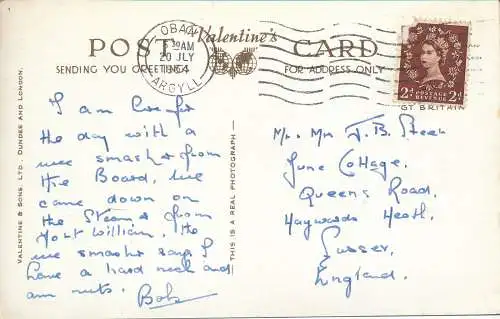 POST Valentine's CARD
SENDING YOU GREETINGS FOR ADDRESS ONLY
OBAN
AM
20 JLY
1964
ARGYLL
2D 2D
POSTAGE
REVENUE
GT. BRITAIN
VALENTINE & SONS, LTD. DUNDEE AND LONDON.
THIS IS A REAL PHOTOGRAPH
I am here for
the day with a
wee smasher from
the Board, we
came down on
the Steamer from
Fort William, the
wee smasher says I
have a hard neck and
am nuts. Bob
Mr. Mrs J. B. Steer
June Cottage.
Queens Road.
Haywards Heath.
Sussex.
England.